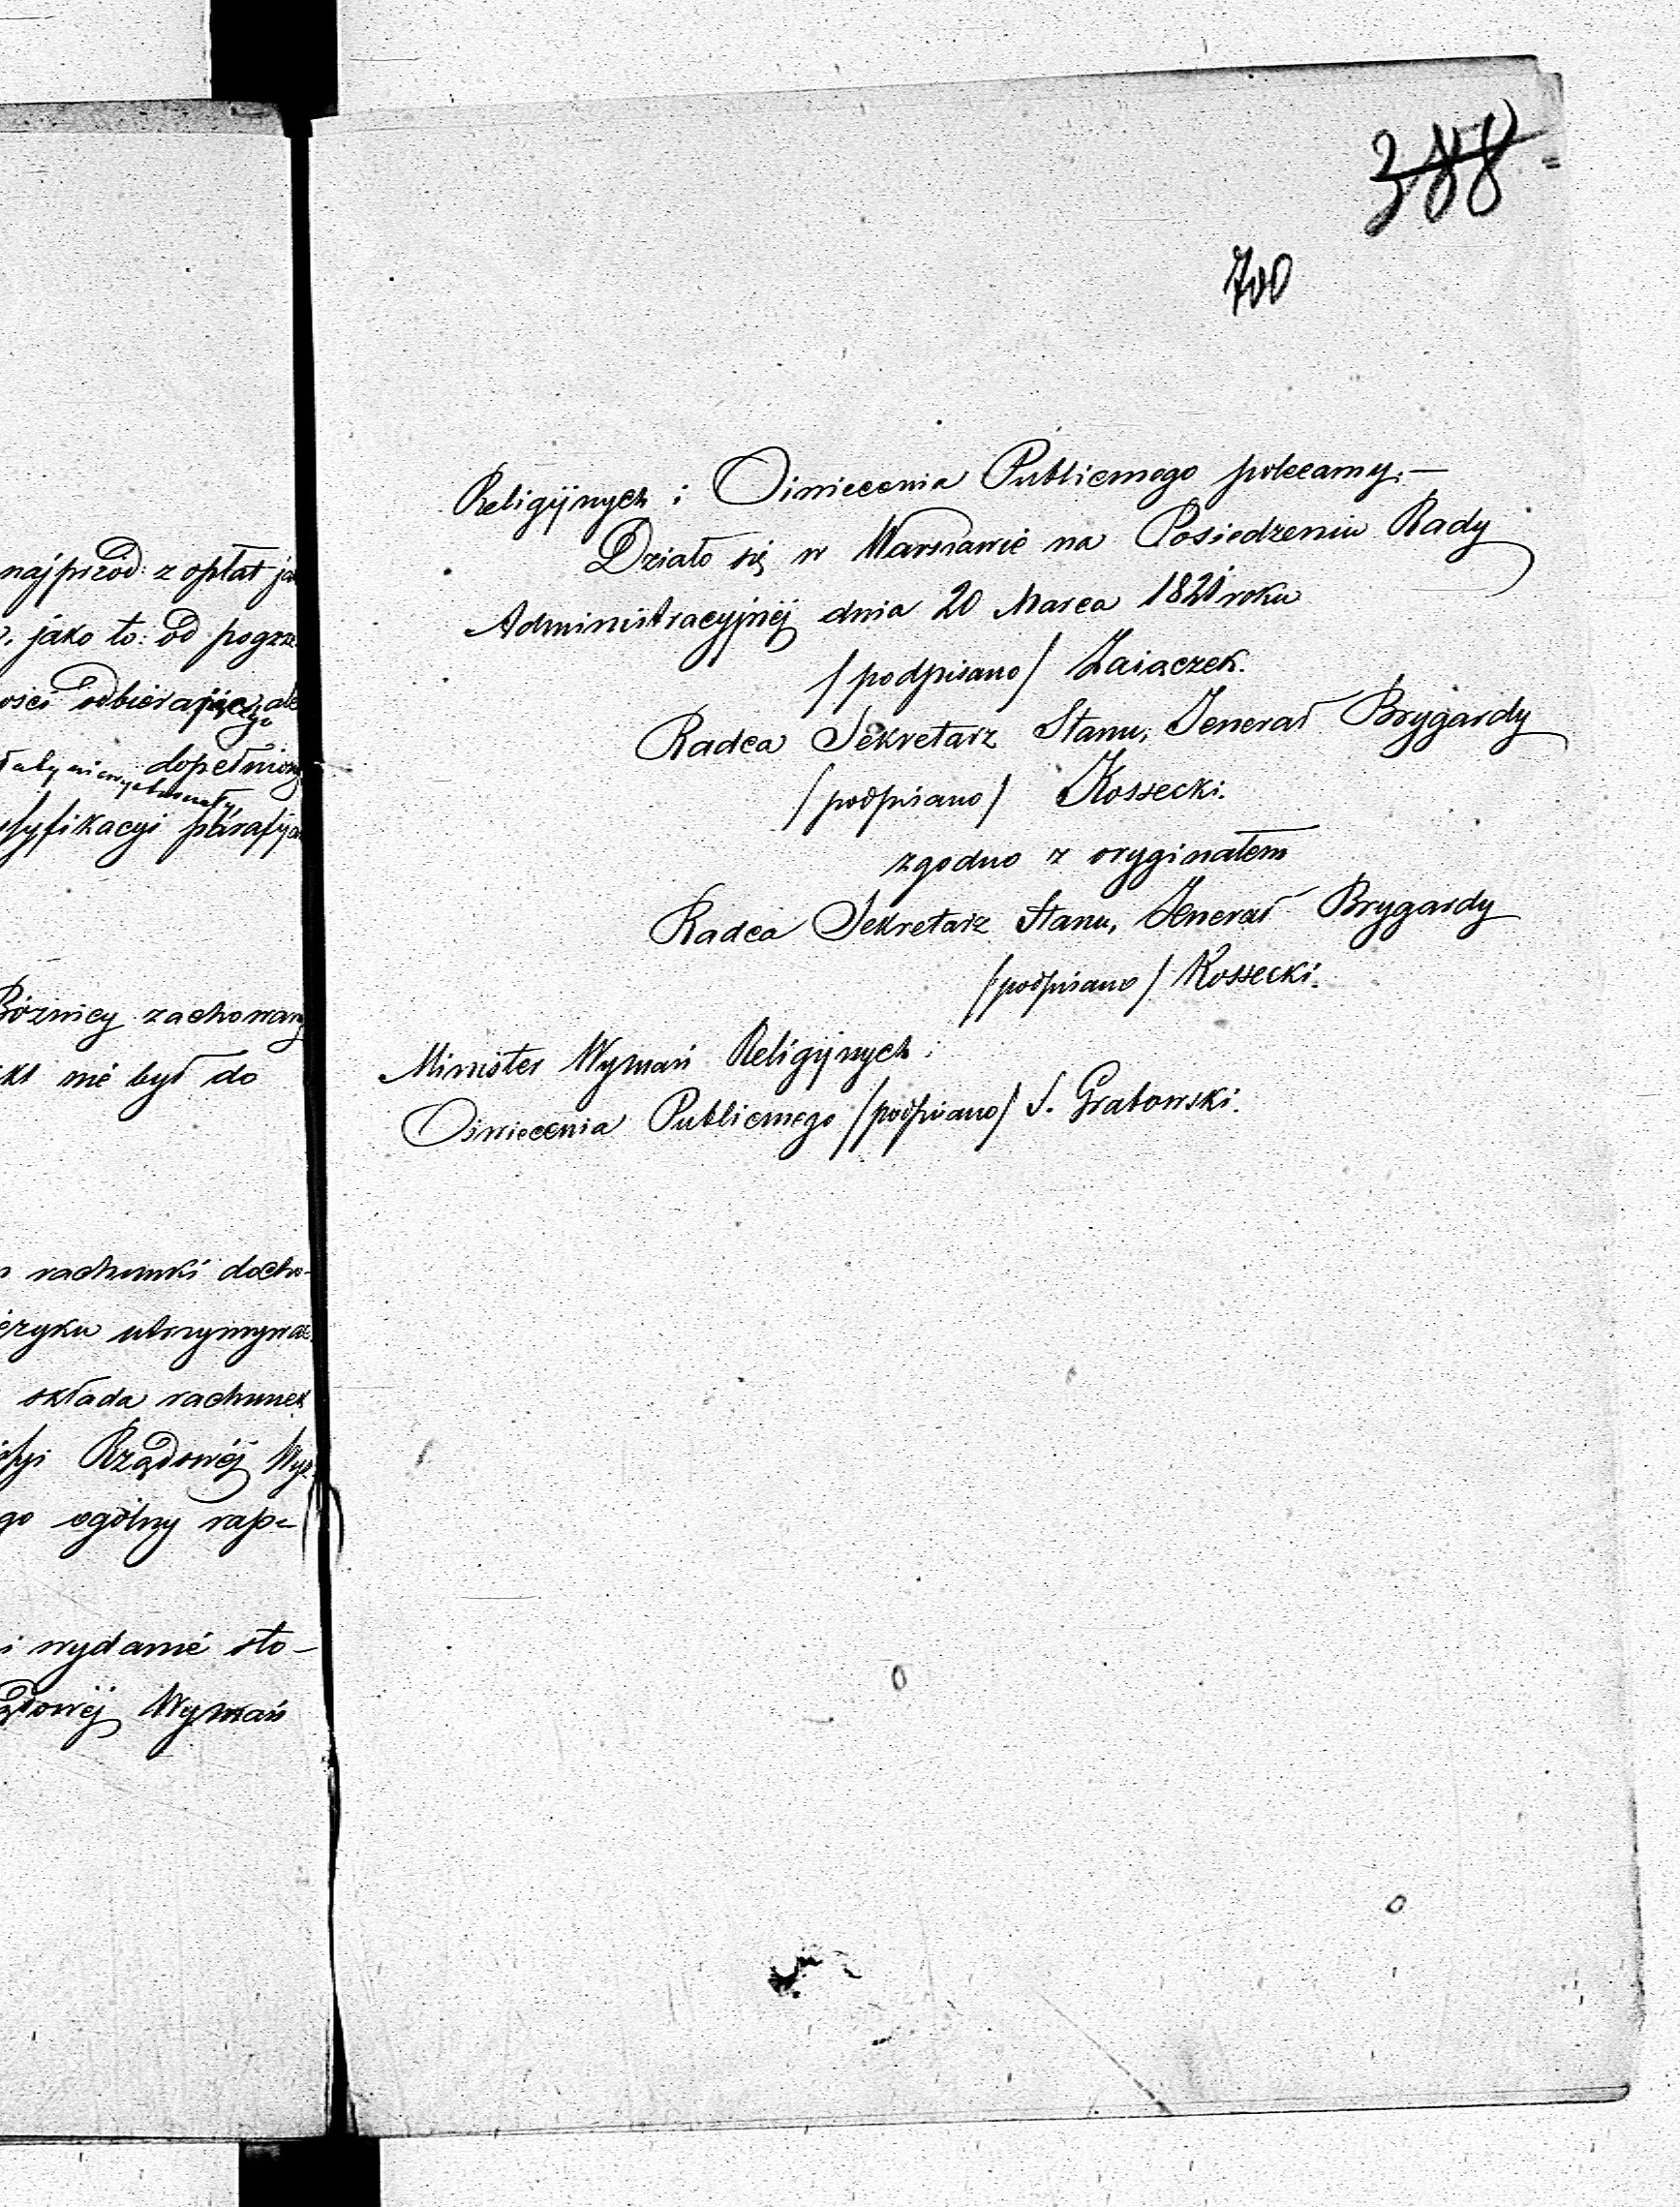 najpiérod: z opłat
jako to: od pogrze
ości odbierającego
dopełniony
parafijal
Bóżnicy zachowany
nié był do
rachunki docho-
utrzymywać
składa rachunek
Rządowéj Wyz
go ogólny rapo-
i wydanié sto-
ądowéj Wyznań
388
700
Religijnych i Oświecenia Publicznego polecamy.—
Działo się w Warszawié na Posiedzeniu Rady
Administracyjnéj dnia 20 Marca 1821 roku
/podpisano/ Zaiączek.
Radca Sekretarz Stanu, Jenerał Brygardy
/podpisano/ Kossecki.
zgodno z oryginałem
Radca Sekretarz Stanu, Jenerał Brygardy
/podpisano/ Kossecki.
Minister Wyznań Religijnych i
Oświecenia Publicznego /podpisano/ S. Grabowski.